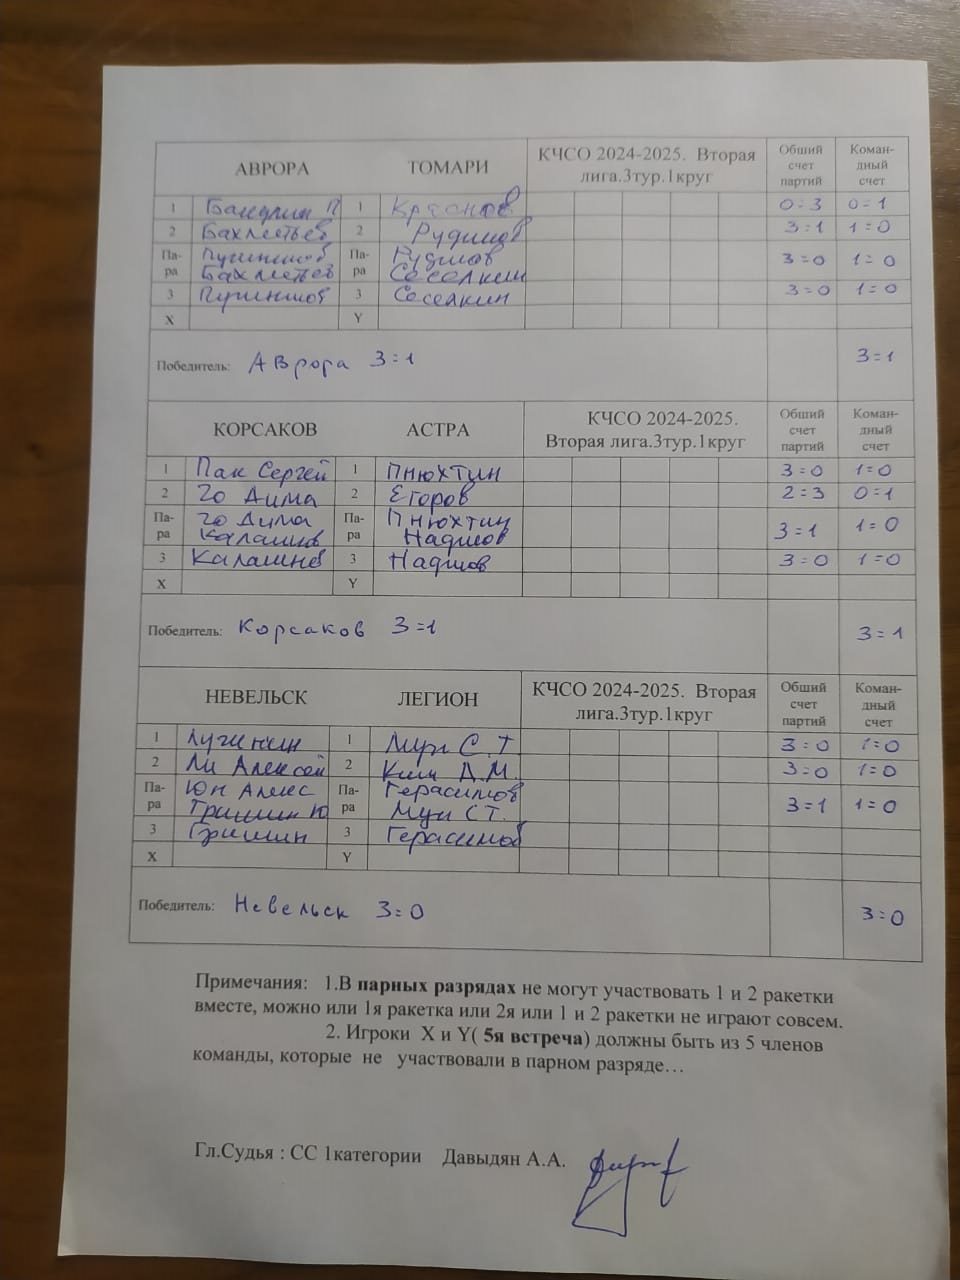 АВРОРА ТОМАРИ КЧСО 2024-2025. Вторая лига.3тур.1круг Общий счет партий Коман-дный счет
1 П 1 Краснов 0=3 0=1
2 Бахметьев 2 3=1 1=0
Па-ра Па-ра 3=0 1=0
Бахметьев Соселкин
3 3 Соселкин 3=0 1=0
X Y
Победитель: Аврора 3=1 3=1
КОРСАКОВ АСТРА КЧСО 2024-2025. Вторая лига.3тур.1круг Общий счет партий Коман-дный счет
1 Пак Сергей 1 Пнюхтин 3=0 1=0
2 Го Дима 2 Егоров 2=3 0=1
Па-ра Го Дима Па-ра Пнюхтин 3=1 1=0
3 3 3=0 1=0
X Y
Победитель: Корсаков 3=1 3=1
НЕВЕЛЬСК ЛЕГИОН КЧСО 2024-2025. Вторая лига.3тур.1круг Общий счет партий Коман-дный счет
1 1 Мун С.Т. 3=0 1=0
2 Ли Алексей 2 Ким А.М. 3=0 1=0
Па-ра Юн Алекс Па-ра Герасимов 3=1 1=0
Гришин Ю Мун С Т.
3 Гришин 3 Герасимов
X Y
Победитель: Невельск 3=0 3=0
Примечания: 1.В парных разрядах не могут участвовать 1 и 2 ракетки
вместе, можно или 1я ракетка или 2я или 1 и 2 ракетки не играют совсем.
2. Игроки X и Y( 5я встреча) должны быть из 5 членов
команды, которые не участвовали в парном разряде…
Гл.Судья : СС 1категории Давыдян А.А.